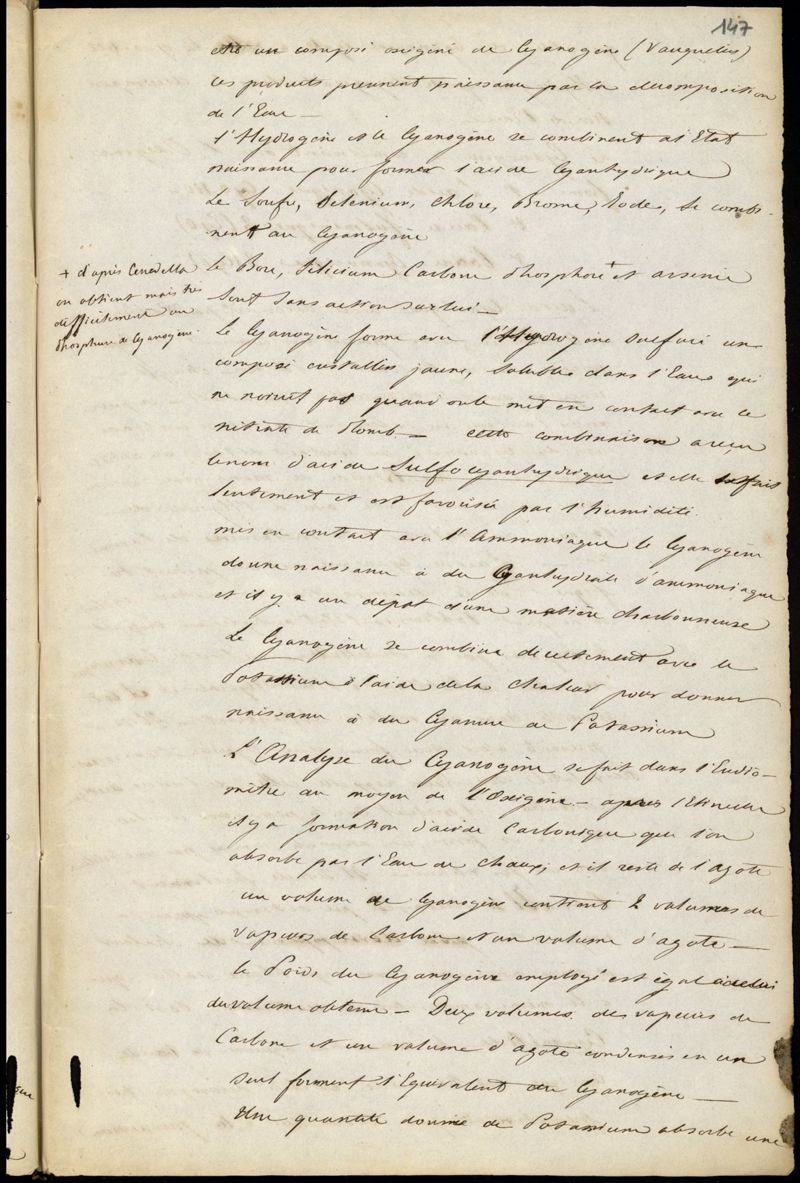 147
un composé oxigéné de Cyanogène (Vauquelin)
ces produits prennent naissance par la décomposition
de l'Eau —
l'Hydrogène et le Cyanogène se combinent à l'Etat
naissance pour former l'acide Cyanhydrique
Le Soufre, Selenium, Chlore, Brome, Iode, se combi-
nent au Cyanogène
+ d'après Cenedella
on obtient mais très
difficilement un
phosphure de Cyanogène.
le Bore, Silicium Carbone phosphore + et arsenic
sont sans action sur lui —
Le Cyanogène forme avec l'Hydrogène sulfuré un
composé cristallin jaune, soluble dans l'Eau qui
ne noircit pas quand on le met en contact avec le
nitrate de Plomb — cette combinaison a reçu
le nom d'acide Sulfocyanhydrique et elle se fait
lentement et est favorisée par l'humidité.
mis en contact avec l'Ammoniaque le Cyanogène
donne naissance à du Cyanhydrate d'ammoniaque
et il y a un dépot d'une matière charbonneuse
Le Cyanogène se combine directement avec le
Potassium à l'aide de la chaleur pour donner
naissance à du Cyanure de Potassium
L'Analyse du Cyanogène se fait dans l'Eudio-
mètre au moyen de l'Oxigène — après l'Etincelle
il y a formation d'acide Carbonique que l'on
absorbe par l'Eau de chaux, et il reste de l'azote
un volume de Cyanogène contient 2 volumes de
vapeurs de Carbone et un volume d'azote —
le Poids du Cyanogène employé est égal à celui
du volume obtenu — Deux volumes des vapeurs de
Carbone et un volume d'azote condensés en un
seul forment l'Equivalent du Cyanogène —
Une quantité donnée de Potassium absorbe une